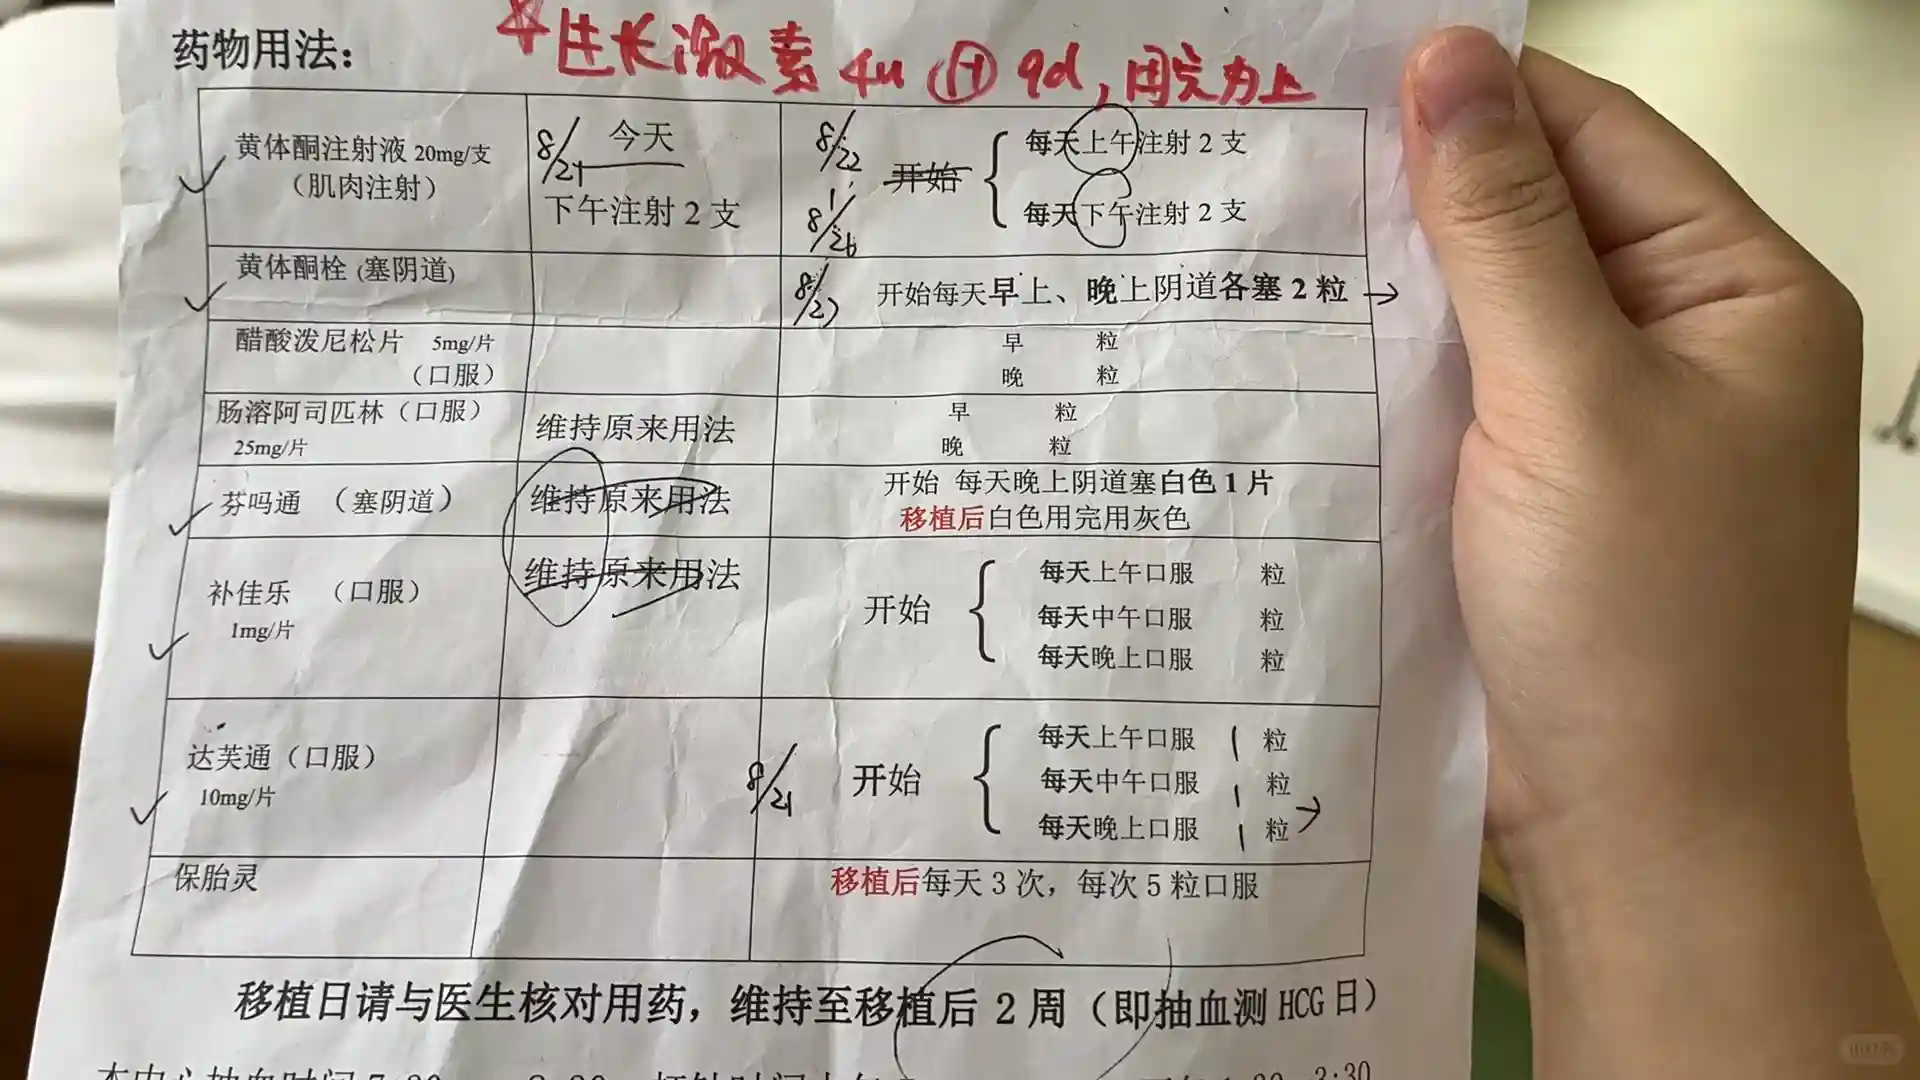 *生长激素 4u ⊕ 9d，用完为止
药物用法：
黄体酮注射液 20mg/支
（肌肉注射）
8/21 今天
下午注射 2 支
8/22
8/26
开始
每天上午注射 2 支
每天下午注射 2 支
黄体酮栓 (塞阴道)
8/27 开始每天早上、晚上阴道各塞 2 粒 →
醋酸泼尼松片 5mg/片
（口服）
早 粒
晚 粒
肠溶阿司匹林（口服）
25mg/片
维持原来用法
早 粒
晚 粒
芬吗通 （塞阴道）
维持原来用法
开始 每天晚上阴道塞白色 1 片
移植后白色用完用灰色
补佳乐 （口服）
1mg/片
维持原来用法
开始
每天上午口服 粒
每天中午口服 粒
每天晚上口服 粒
达芙通（口服）
10mg/片
8/21 开始
每天上午口服 1 粒
每天中午口服 1 粒
每天晚上口服 1 粒 →
保胎灵
移植后每天 3 次，每次 5 粒口服
移植日请与医生核对用药，维持至移植后 2 周（即抽血测 HCG 日）